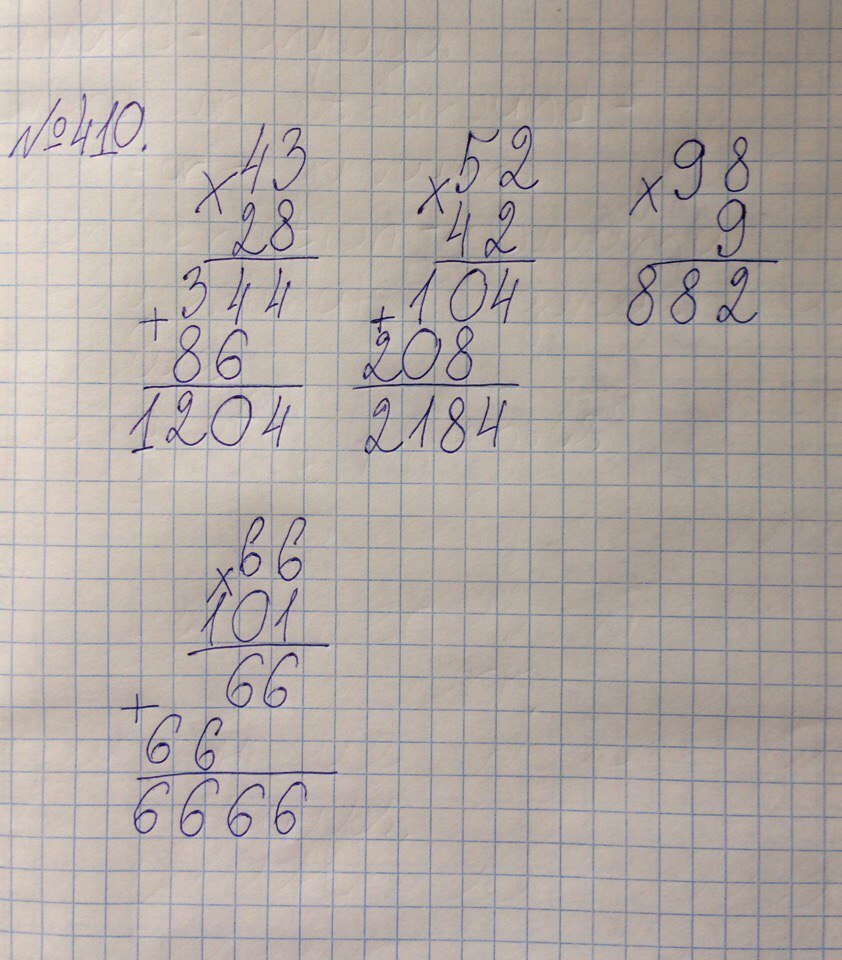 №410.
× 43
28
344
+
86
1204
× 52
42
104
+
208
2184
× 98
9
882
× 66
101
66
+
66
6666